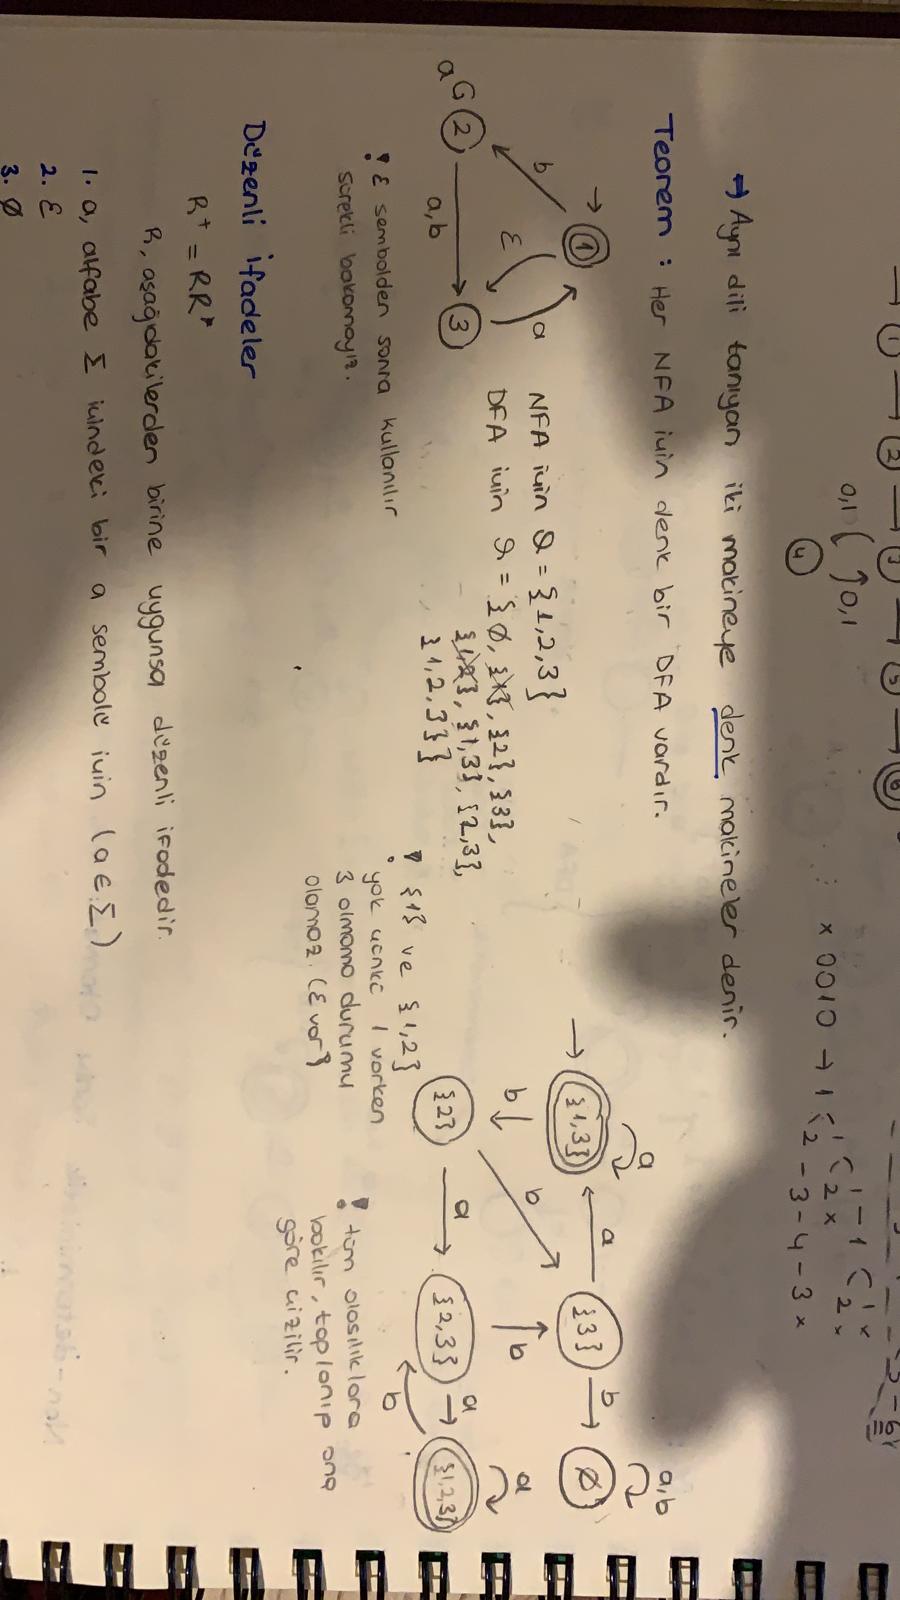 1 2 3 5 6
0,1 0,1
4
5 - 6
x 0010 → 1 1 1 - 1 1 x
2 2 x 2 x
2 - 3 - 4 - 3 x
⇒ Aynı dili tanıyan iki makineye denk makineler denir.
Teorem : Her NFA için denk bir DFA vardır.
→ 1
b ε a
a 2 3
a,b
NFA için Q = {1,2,3}
DFA için Q = {∅, {1}, {2}, {3},
{1,2}, {1,3}, {2,3},
{1,2,3}}
a a,b
→ {1,3} a {3} b ∅
b b b a
{2} a {2,3} a {1,2,3}
b
! ε sembolden sonra kullanılır
sürekli bakamayız.
! {1} ve {1,2}
yok çünkü 1 varken
3 olmama durumu
olamaz. (ε var)
! tüm olasılıklara
bakılır, toplanıp ona
göre çizilir.
Düzenli ifadeler
R⁺ = RR*
R, aşağıdakilerden birine uygunsa düzenli ifadedir.
1. a, alfabe Σ içindeki bir a sembolü için (a ∈ Σ)
2. ε
3. ∅